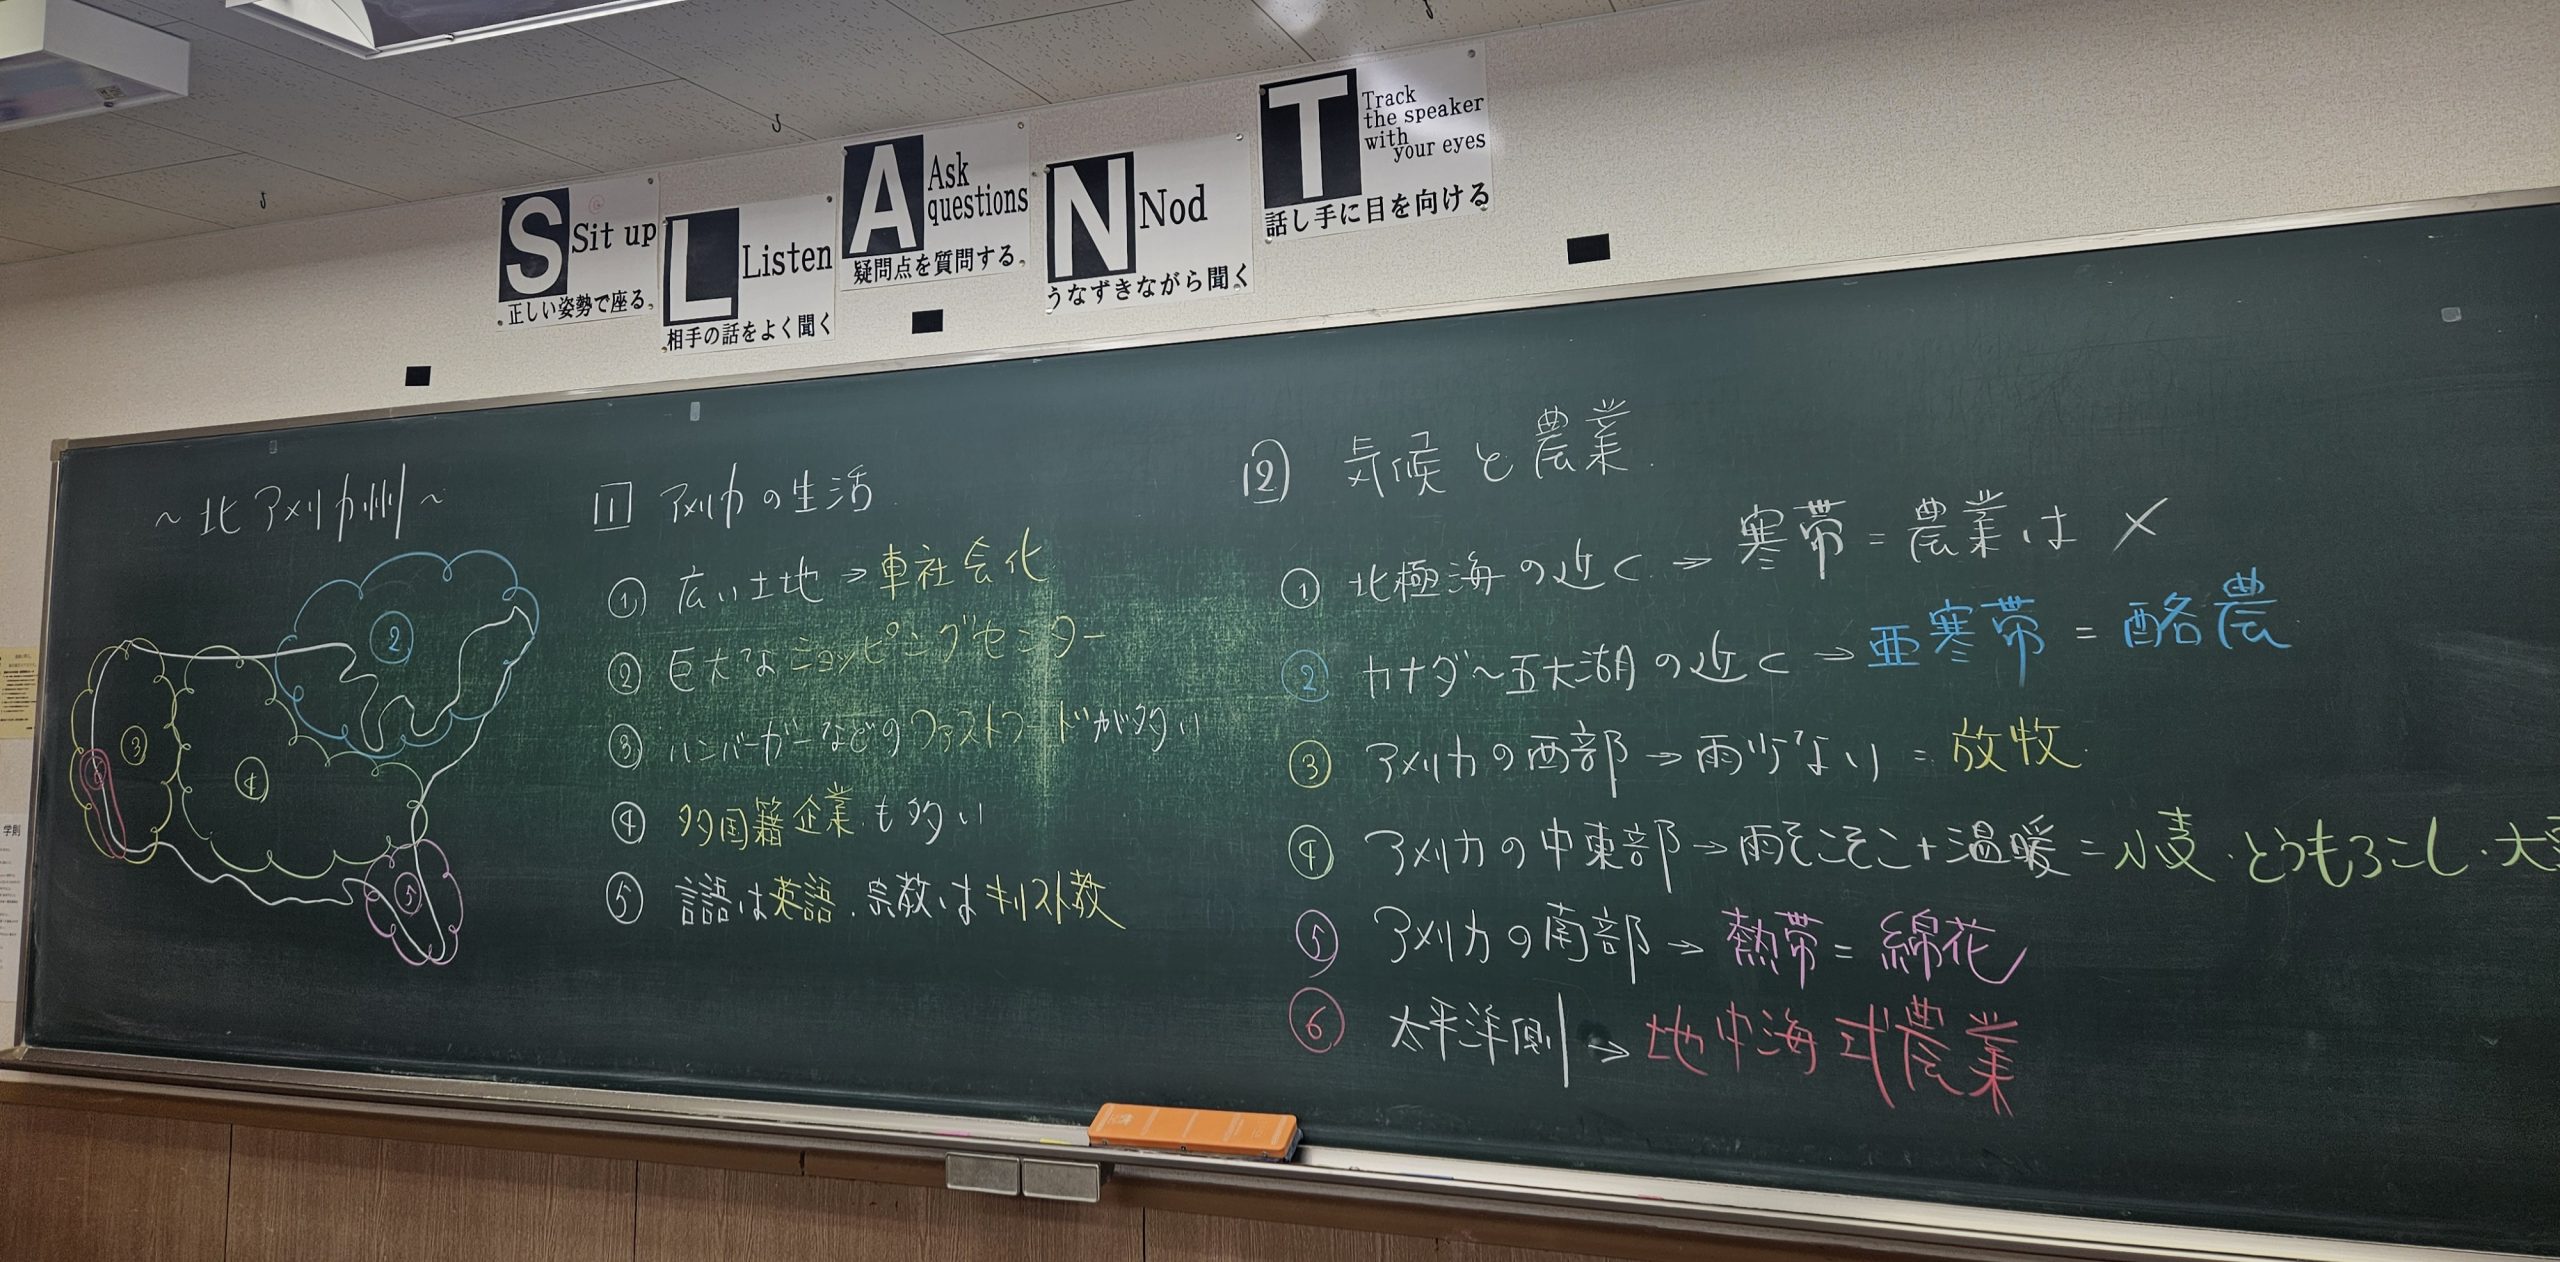 S Sit up
正しい姿勢で座る。
L Listen
相手の話をよく聞く
A Ask questions
疑問点を質問する。
N Nod
うなずきながら聞く
T Track the speaker with your eyes
話し手に目を向ける
～北アメリカ州～
②
③
④
⑤
⑥
1 アメリカの生活
① 広い土地→車社会化
② 巨大なショッピングセンター
③ ハンバーガーなどのファストフードが多い
④ 多国籍企業も多い
⑤ 言語は英語．宗教はキリスト教
2 気候と農業．
① 北極海の近く→寒帯＝農業は×
② カナダ～五大湖の近く→亜寒帯＝酪農
③ アメリカの西部→雨少ない＝放牧．
④ アメリカの中東部→雨そこそこ+温暖＝小麦・とうもろこし・大
⑤ アメリカの南部→熱帯＝綿花
⑥ 太平洋側→地中海式農業
学則